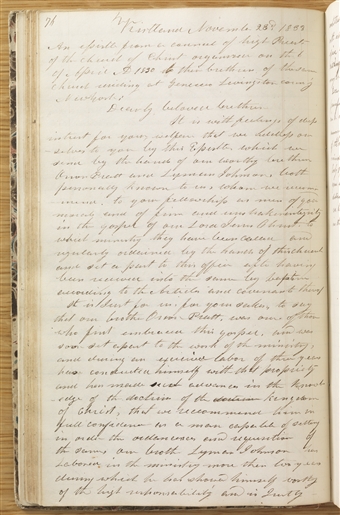 76
Kirtland November 23d 1833
An epistle from a council of high Priests
of the church of Christ organised on the 6
of April AD 1830 to their brethren of the same
church residing at Geneseo Livingston county
New York
Dearly beloved brethren
It is with feelings of deep
interest for your welfare that we address our-
selves to you by this Epistle, which we
send by the hand of our worthy brethren
Orson Pratt and Lyman Johnson, both
personally known to us whom we recom-
mend to your fellowship as men of good
morals and of firm and unshaken integrity
in the gospel of our Lord Jesus Christ to
which ministry they have been called and
regularly ordained by the hands of this church
and set apart to that office after having
been received into the same by baptism
according to the Articles and covenants thereof
It is sent for us, for your sakes, to say
that our brother Orson Pratt, was one of them
who first embraced this gospel, and was
soon set apart to the work of the ministry,
and during labor of three years
has conducted himself with that propriety
and has made such advance in the know-
ledge of the doctrine of the kingdom
of Christ, that we recommend him in
full confidence as a man capable of setting
in order the ordinances and requisitions of
the same. our broth Lyman Johnson has
labored in the ministry more than two years
during which he has shown himself worthy
of the high responsibility and is justly